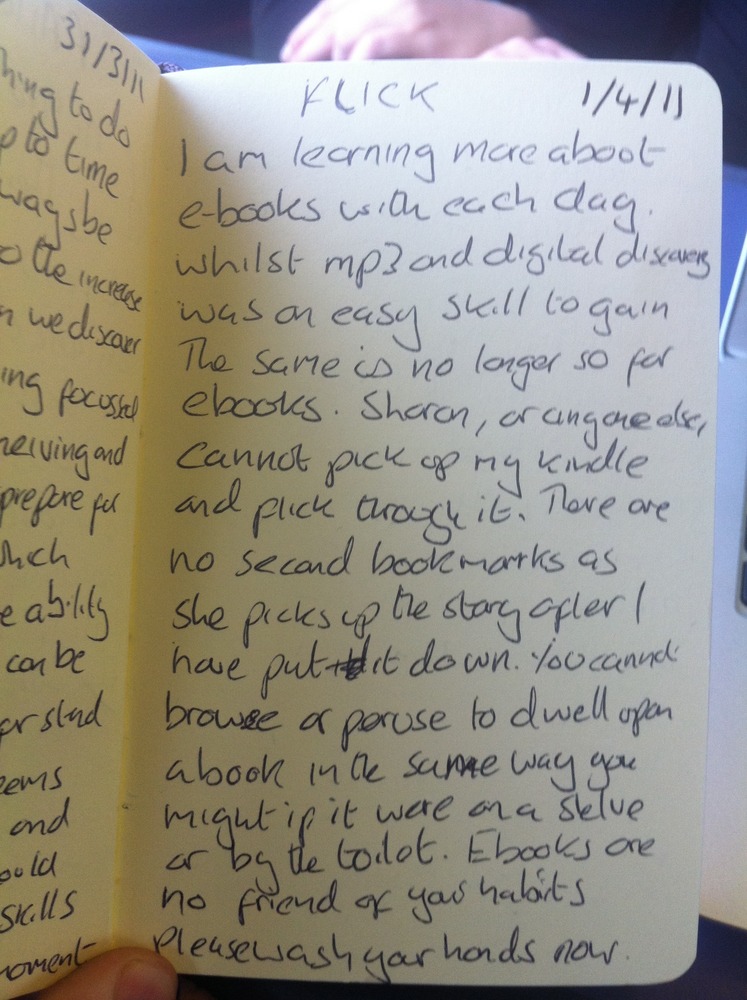 31/3/11
hing to do
p to time
ways be
o the increase
n we discover
ing focussed
heiving and
prepare for
hich
e ability
can be
or stand
eems
and
ould
skills
moment
FLICK
1/4/11
I am learning more about
e-books with each day.
whilst mp3 and digital discovery
was an easy skill to gain
The same is no longer so for
ebooks. Sharon, or anyone else,
cannot pick up my kindle
and flick through it. There are
no second bookmarks as
she picks up the story after I
have put it down. You cannot
browse or peruse to dwell upon
a book in the same way you
might if it were on a shelve
or by the toilet. Ebooks are
no friend of your habits
Please wash your hands now.